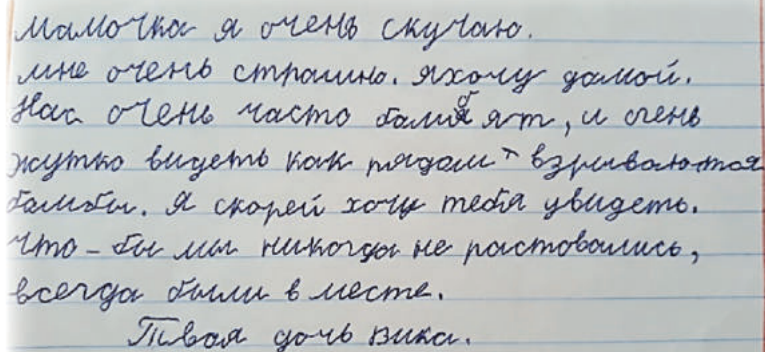 мамочка я очень скучаю.
мне очень страшно. яхочу домой.
Нас очень часто бомбят, и очень
жутко видеть как рядом взрываются
бомбы. Я скорей хочу тебя увидеть.
Что-бы мы никогда не растовались,
всегда были в месте.
Твоя дочь вика.